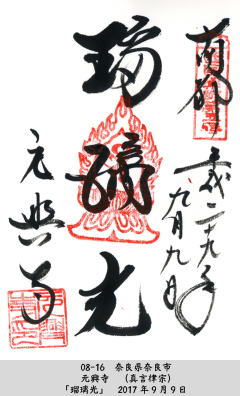 奉拝
平成二十九年九月九日
瑠璃光
元興寺
08-16 奈良県奈良市
元興寺 (真言律宗)
「瑠璃光」 2017年9月9日